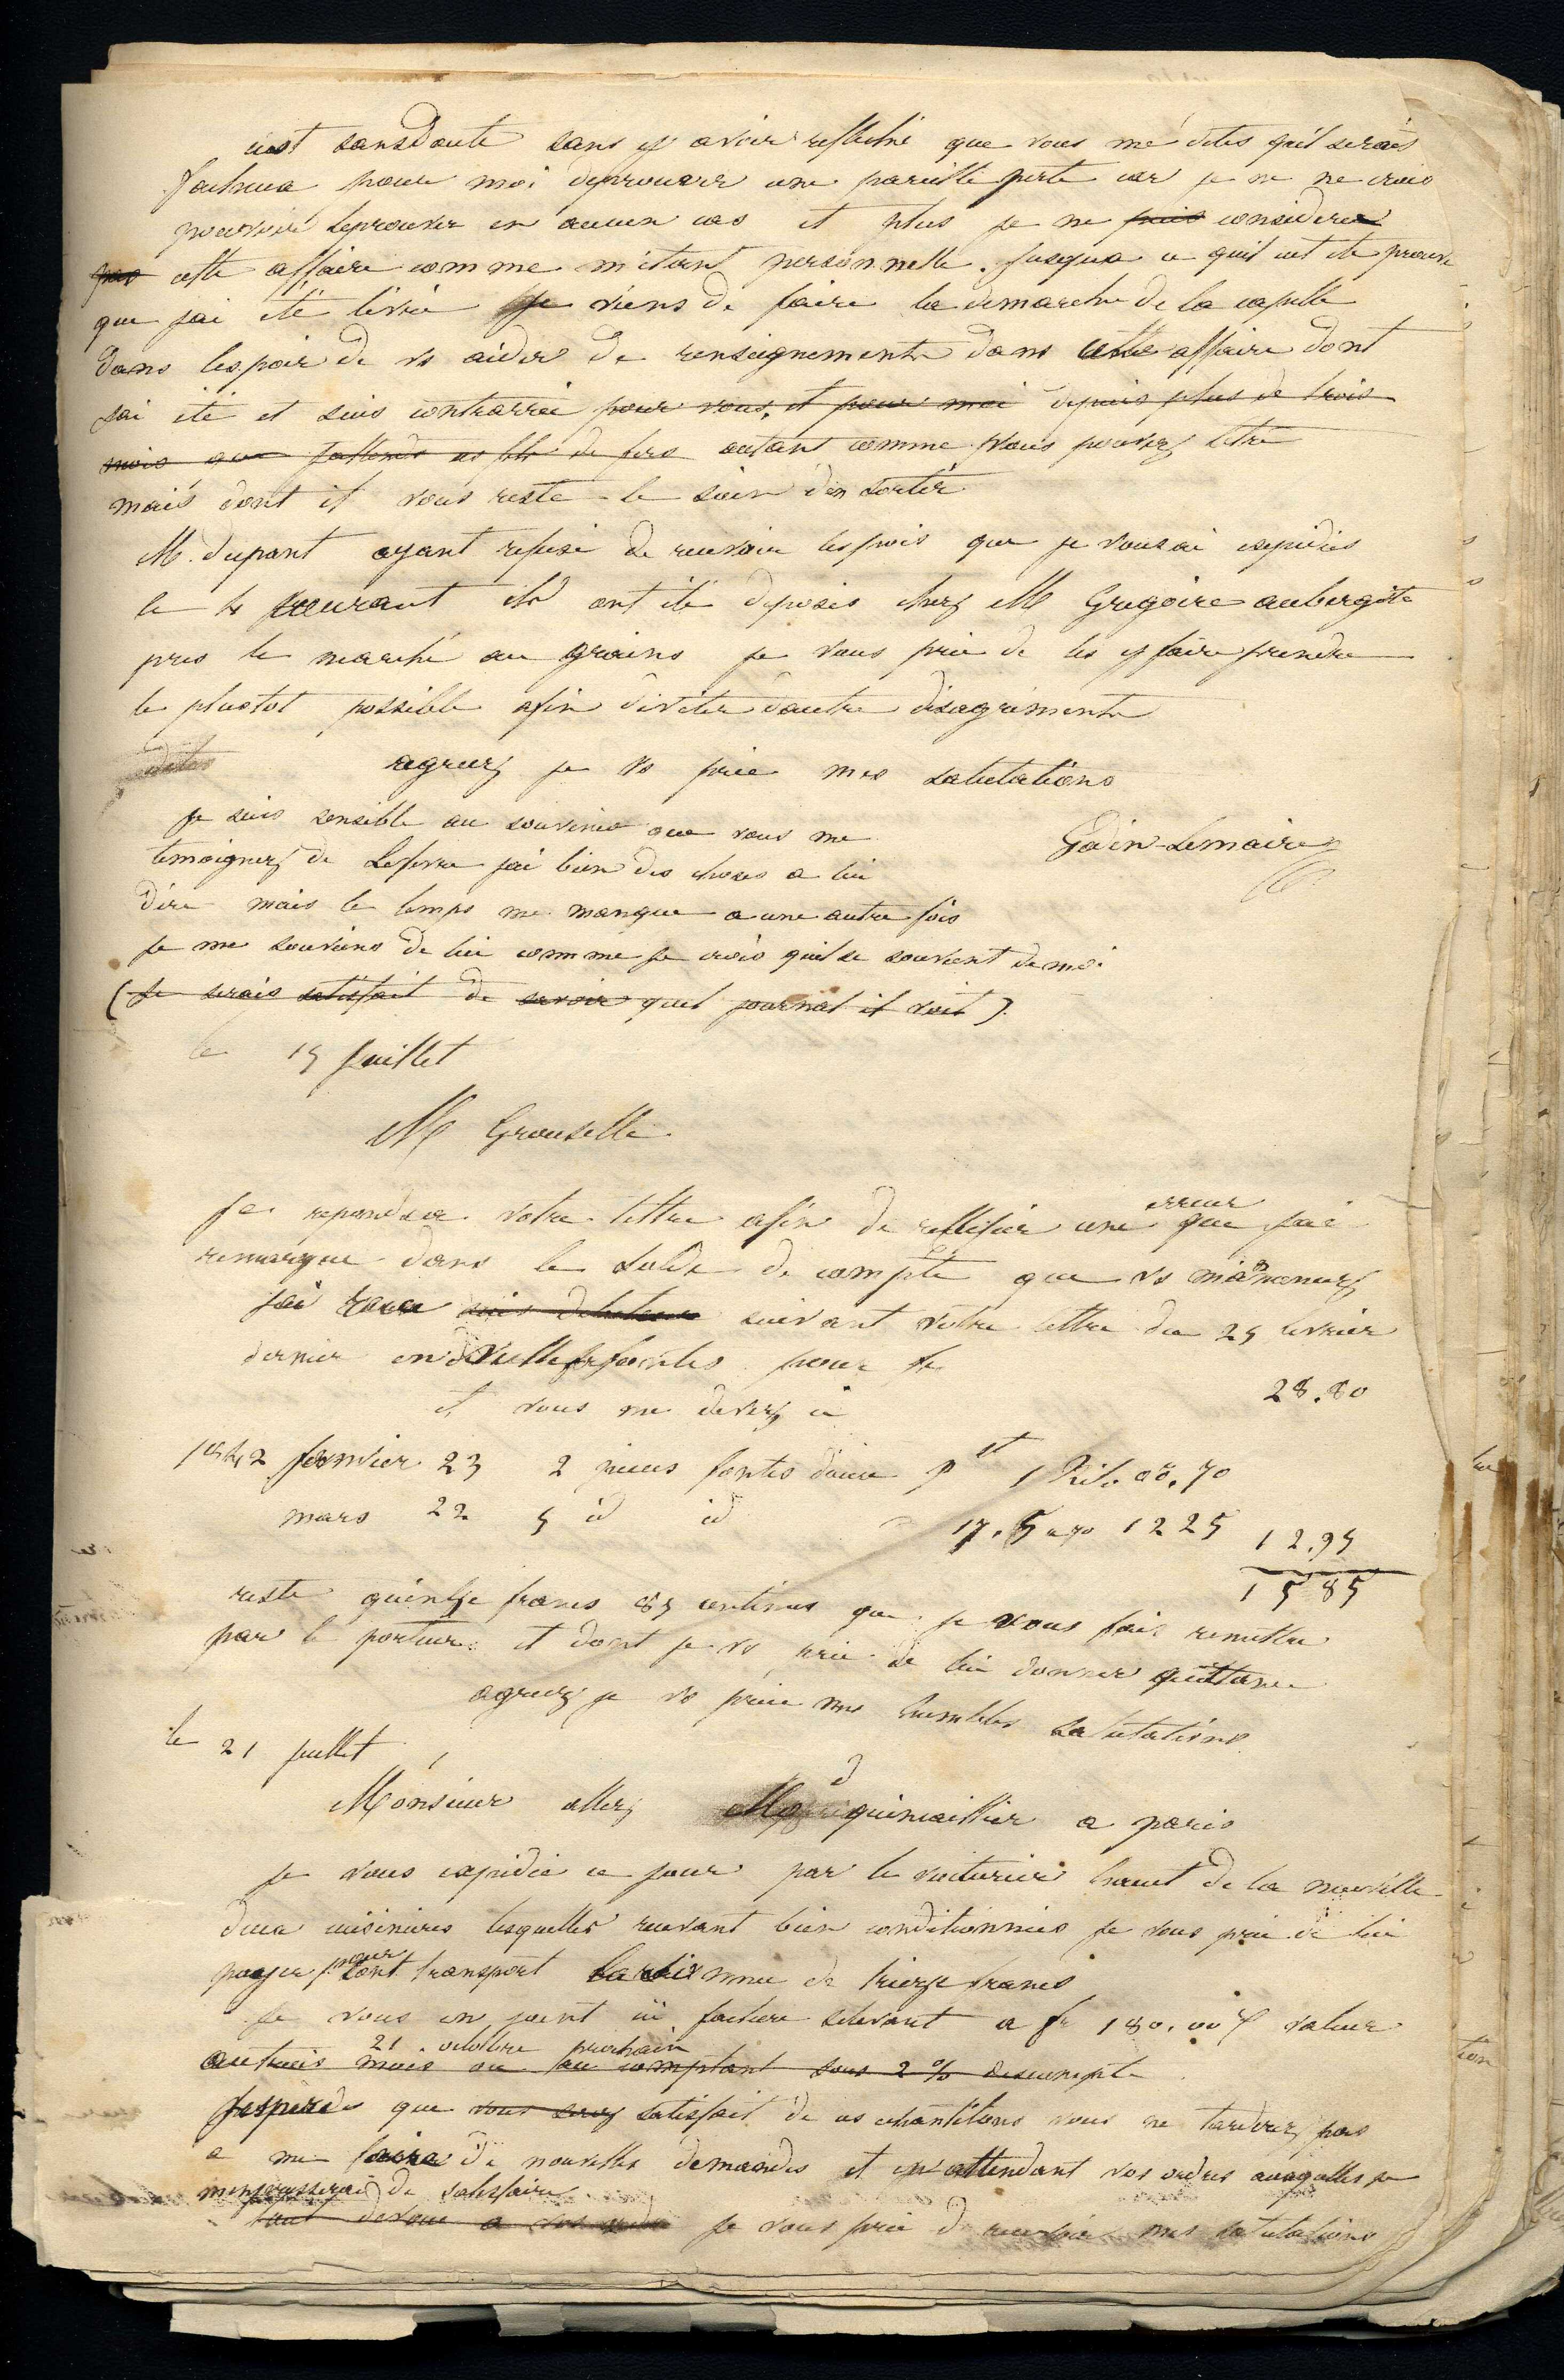 cest sans doute sans y avoir reflechi que vous me dites quil serais
facheux pour moi deprouver une pareille perte car je ne crois
pouvoir leprouver en aucun cas et plus je ne puis considerer
pas cette affaire comme m'etant personnelle. Jusqua ce quil eut ete prouve
que jai été livré je viens de faire la demarche de la capelle
dans lespoir de vs aider de renseignements dans cette affaire dont
jai été et suis contrarié pour vous, et pour moi depuis plus de trois
mois que jattends ces fils de fers autant comme vous pouvez letre
mais dont il vous reste le soin den sortir
M. dupont ayant refusé de recevoir les pois que je vous ai expidies
le 4 courant ils ont été deposés chez M Gregoire aubergiste
pres le marché au grains je vous prie de les y faire prendre
le plustot possible afin deviter dautre desagrements
agreez je vs prie mes salutations
je suis sensible au souvenir que vous me
temoignez de Lefevre jai bien des choses a lui
dire mais le temps me manque a une autre fois
Godin-Lemaire
je me souviens de lui comme je crois quil se souvient de moi
(je serais satisfait de savoir quel journal il voit).
le 15 juillet
M Grouselle
Je reponds a votre lettre afin de rectifier une erreur que jai
remarque dans le solde de compte que vs mannoncez
jai recu suis debiteur suivant votre lettre du 25 fevrier
dernier en vielles fontes pour fr 28.80
et vous me devez ci
1842 janvier 23 2 pieces fontes douce pst 1 Kil. 00.70
mars 22 5 id id 17.5 a 70 1225 12.95
15 85
reste quinze francs 85 centimes que je vous fais remettre
par le porteur et dont je vs prie de lui donner quittance
agreez je vs prie mes humbles salutations
le 21 juillet
Monsieur allez Md quincaillier a paris
je vous expidie ce jour par le voiturier huet de la neuville
deux cuisinieres lesquelles recevant bien conditionnées je vous prie de lui
payer pour tout transport la somme de treize francs
Je vous en joint ici facture selevant a fr 180.00 valeur
21 octobre prochain
au trois mois ou au comptant sous 2 % descompte
Jesperes que vous serez satisfait de ces echantillons vous ne tarderez pas
a me faire de nouvelles demandes et en attendant vos ordres auxquelles je
mempresserai de satisfaire
tout devoue a vos ordres je vous prie de recevoir mes salutations